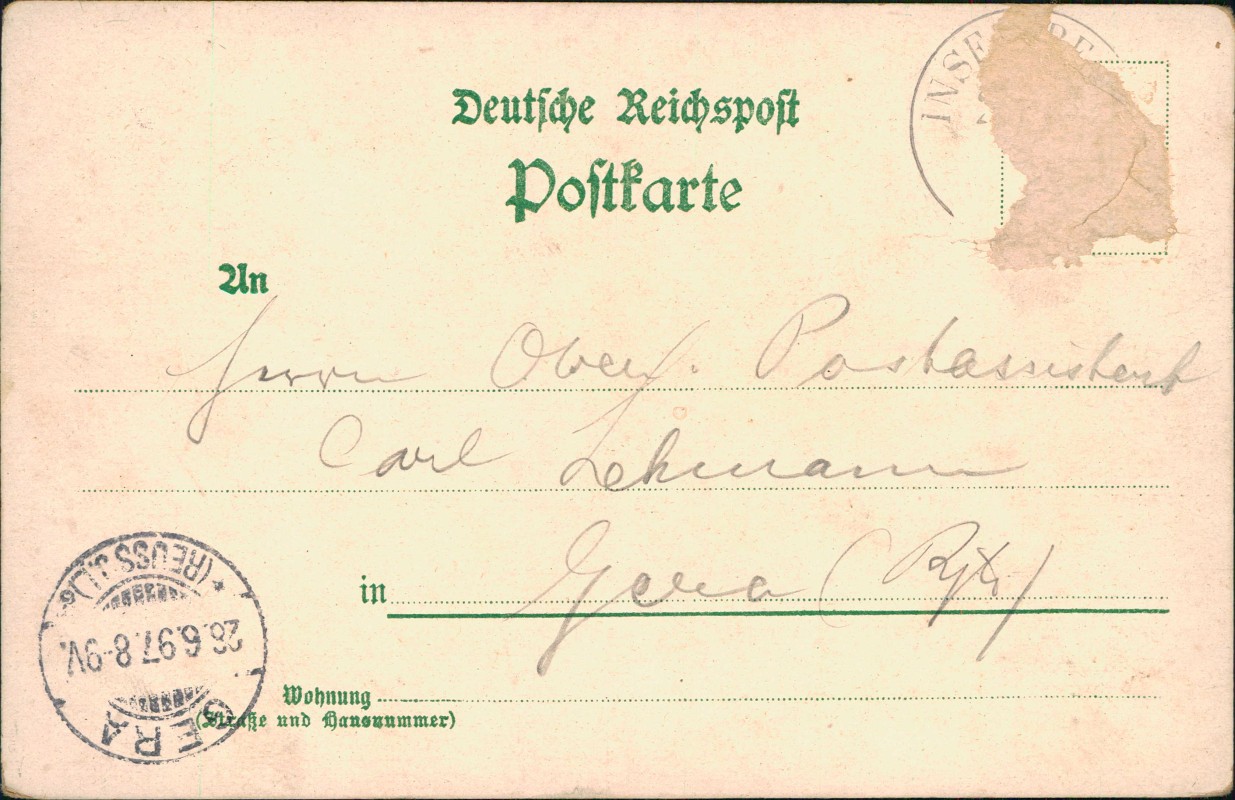 Deutsche Reichspost
Postkarte
An
Herrn Ober. Postassistent
Carl Lehmann
in Gera (
Wohnung
(Straße und Hausnummer)
GERA
28.6.97.8-9V.
* (REUSS J.L.)
INSE